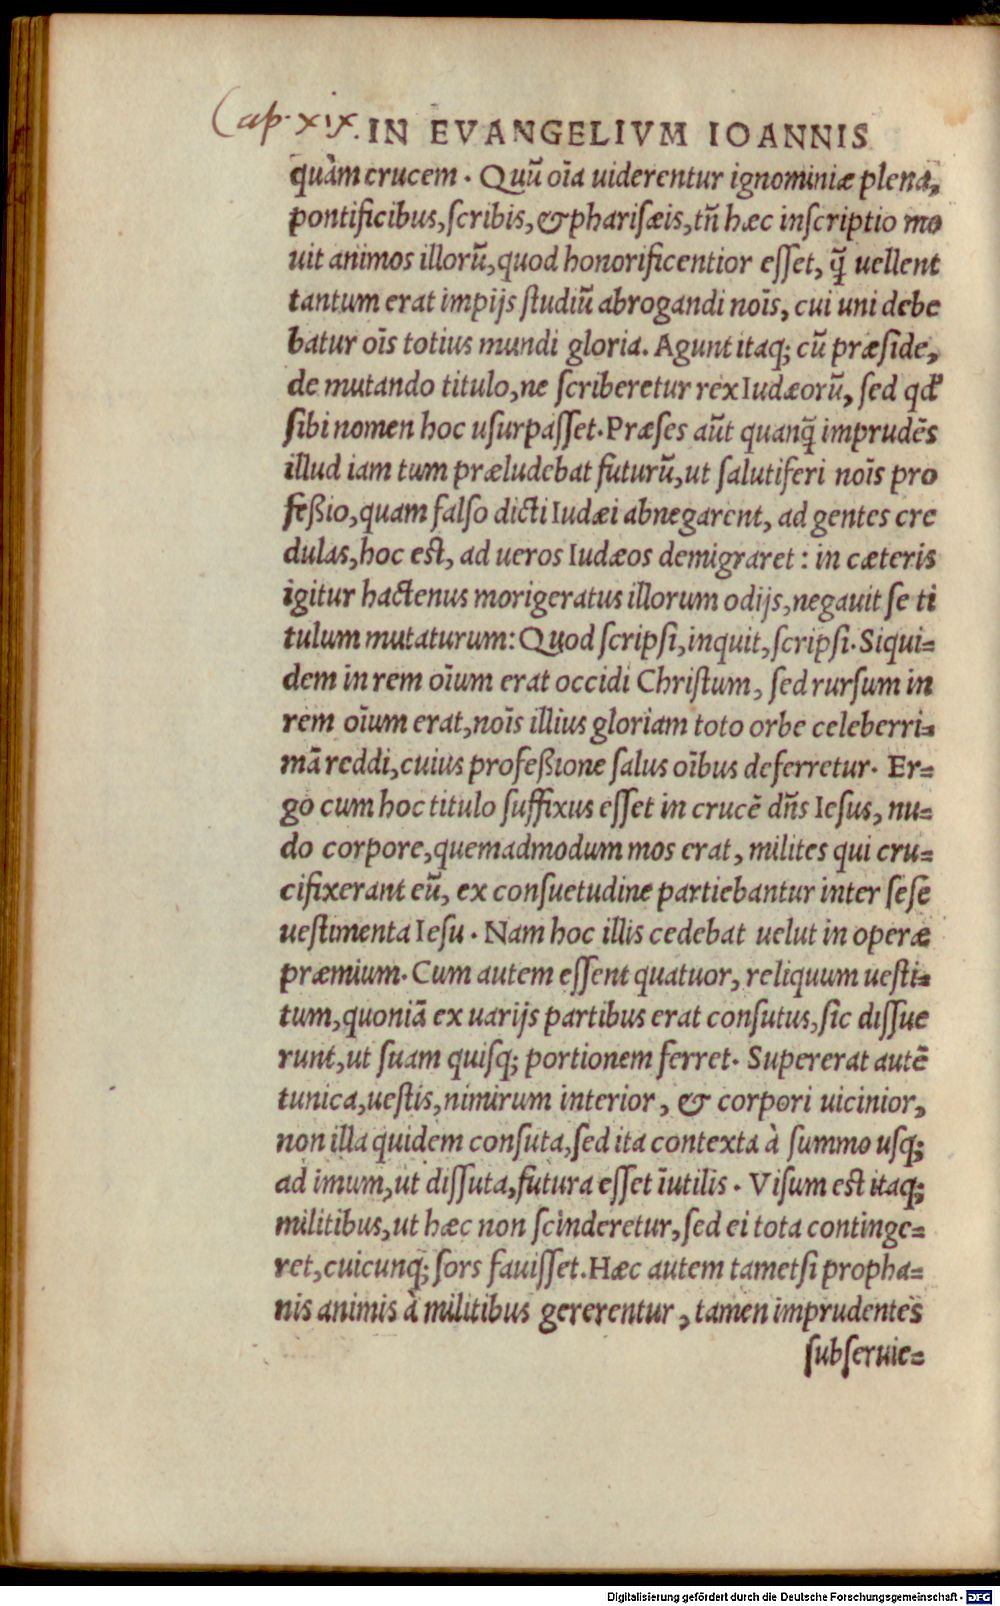 Cap. xix. IN EVANGELIVM IOANNIS
quàm crucem . Quũ oĩa uiderentur ignominiæ plena,
pontificibus, ſcribis, & phariſæis, tñ hæc inſcriptio mo
uit animos illorũ, quod honorificentior eſſet, q̃ uellent
tantum erat impijs ſtudiũ abrogandi noĩs, cui uni debe
batur oĩs totius mundi gloria. Agunt itaq; cũ præſide,
de mutando titulo, ne ſcriberetur rex Iudæorũ, ſed qđ
ſibi nomen hoc uſurpaſſet. Præſes aũt quanq̃ imprudẽs
illud iam tum præludebat futurũ, ut ſalutiferi noĩs pro
feßio, quam falſo dicti Iudæi abnegarent, ad gentes cre
dulas, hoc eſt, ad ueros Iudæos demigraret : in cæteris
igitur hactenus morigeratus illorum odijs, negauit ſe ti
tulum mutaturum: Quod ſcripſi, inquit, ſcripſi. Siqui=
dem in rem oĩum erat occidi Chriſtum, ſed rurſum in
rem oĩum erat, noĩs illius gloriam toto orbe celeberri=
mã reddi, cuius profeßione ſalus oĩbus deferretur. Er=
go cum hoc titulo ſuffixus eſſet in crucẽ dñs Ieſus, nu=
do corpore, quemadmodum mos erat, milites qui cru=
cifixerant eũ, ex conſuetudine partiebantur inter ſeſe
ueſtimenta Ieſu . Nam hoc illis cedebat uelut in operæ
præmium. Cum autem eſſent quatuor, reliquum ueſti=
tum, quoniã ex uarijs partibus erat conſutus, ſic diſſue
runt, ut ſuam quiſq; portionem ferret. Supererat autẽ
tunica, ueſtis, nimirum interior, & corpori uicinior,
non illa quidem conſuta, ſed ita contexta à ſummo uſq;
ad imum, ut diſſuta, futura eſſet ĩutilis . Viſum eſt itaq;
militibus, ut hæc non ſcinderetur, ſed ei tota continge=
ret, cuicunq; ſors fauiſſet. Hæc autem tametſi propha=
nis animis à militibus gererentur, tamen imprudentes
ſubſeruie=
Digitalisierung gefördert durch die Deutsche Forschungsgemeinschaft - DFG